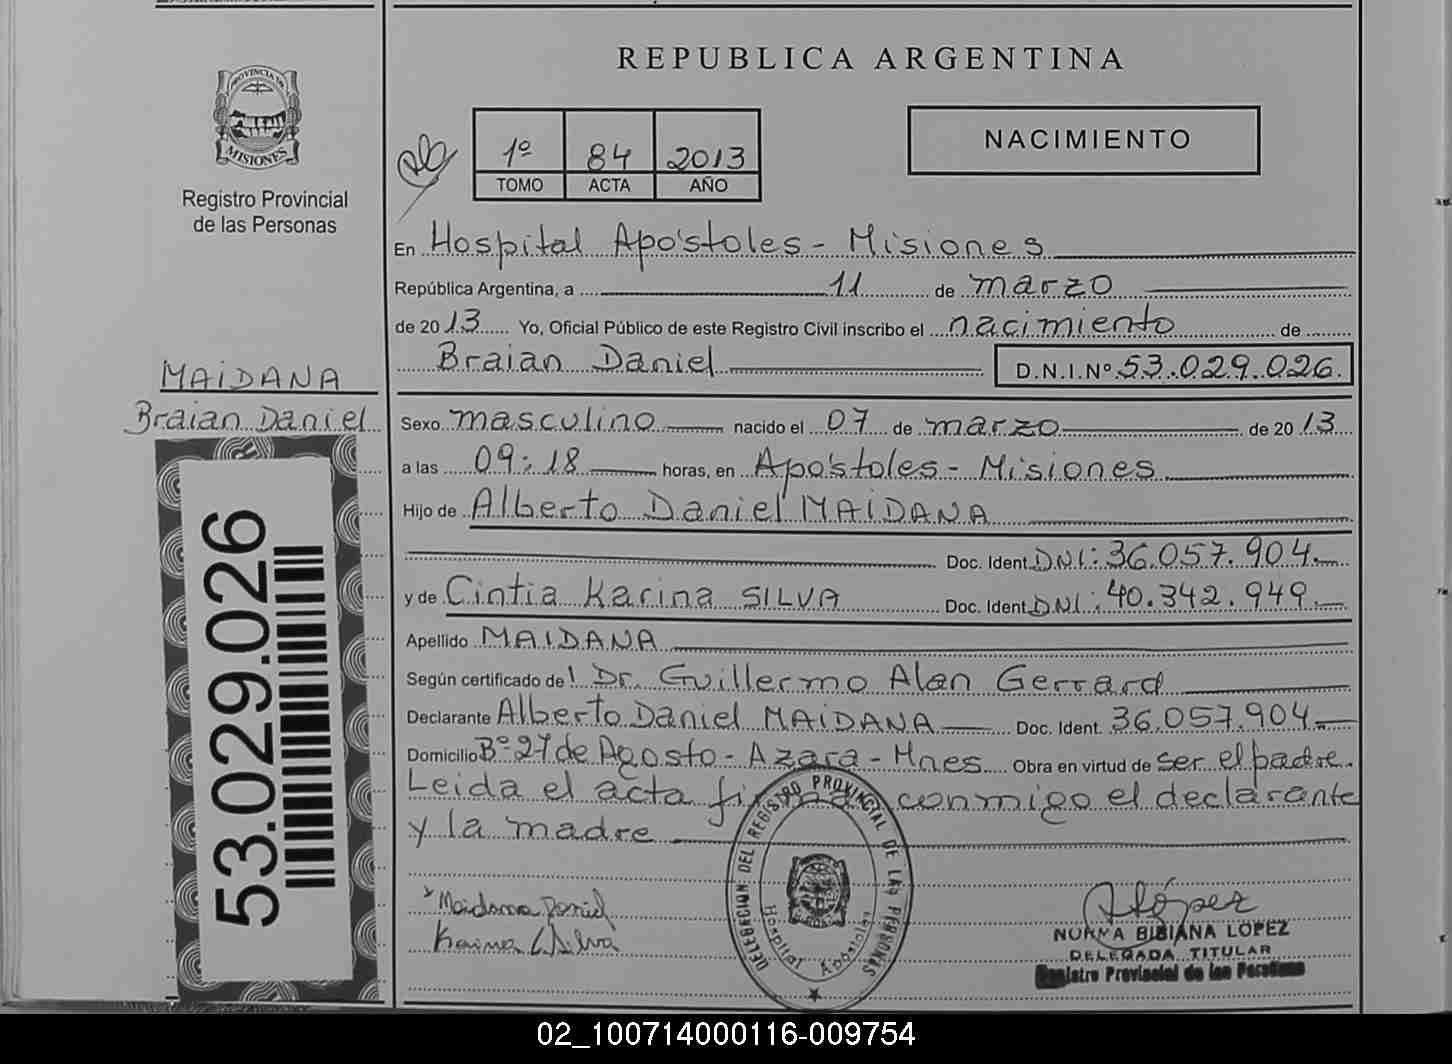 REPUBLICA ARGENTINA
PROVINCIA DE
MISIONES
Registro Provincial
de las Personas
1º 84 2013
TOMO ACTA AÑO
NACIMIENTO
En Hospital Apóstoles - Misiones
República Argentina, a 11 de marzo
de 2013 Yo, Oficial Público de este Registro Civil inscribo el nacimiento de
Braian Daniel D.N.I.Nº 53.029.026.
MAIDANA
Braian Daniel
53.029.026
Sexo masculino nacido el 07 de marzo de 2013
a las 09:18 horas, en Apóstoles - Misiones
Hijo de Alberto Daniel MAIDANA
Doc. Ident. DNI: 36.057.904.-
y de Cintia Karina SILVA Doc. Ident. DNI: 40.342.949.-
Apellido MAIDANA
Según certificado de l Dr. Guillermo Alan Gerrard
Declarante Alberto Daniel MAIDANA Doc. Ident. 36.057.904.-
Domicilio Bº 27 de Agosto - Azara - Mnes Obra en virtud de ser el padre.
Leida el acta conmigo el declarante
y la madre
Maidana Daniel
Karina Silva
DELEGACION DEL REGISTRO PROVINCIAL DE LAS PERSONAS
Hospital Apóstoles
López
NORMA BIBIANA LOPEZ
DELEGADA TITULAR
Registro Provincial de las Personas
02_100714000116-009754